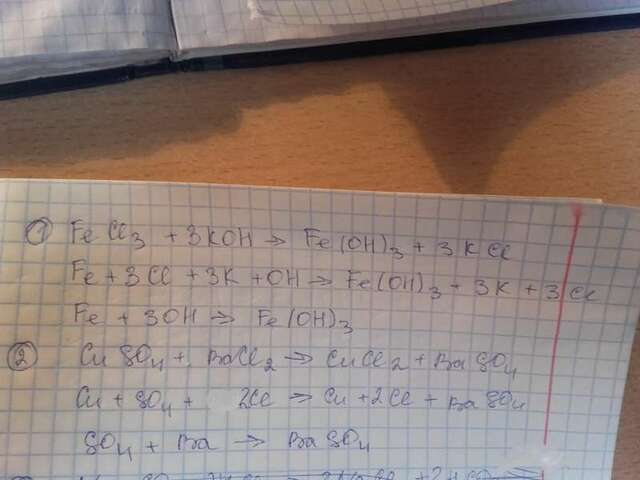 ① FeCl3 + 3KOH → Fe(OH)3 + 3KCl
Fe + 3Cl + 3K + OH → Fe(OH)3 + 3K + 3Cl
Fe + 3OH → Fe(OH)3
② CuSO4 + BaCl2 → CuCl2 + BaSO4
Cu + SO4 + 2Cl → Cu + 2Cl + BaSO4
SO4 + Ba → BaSO4